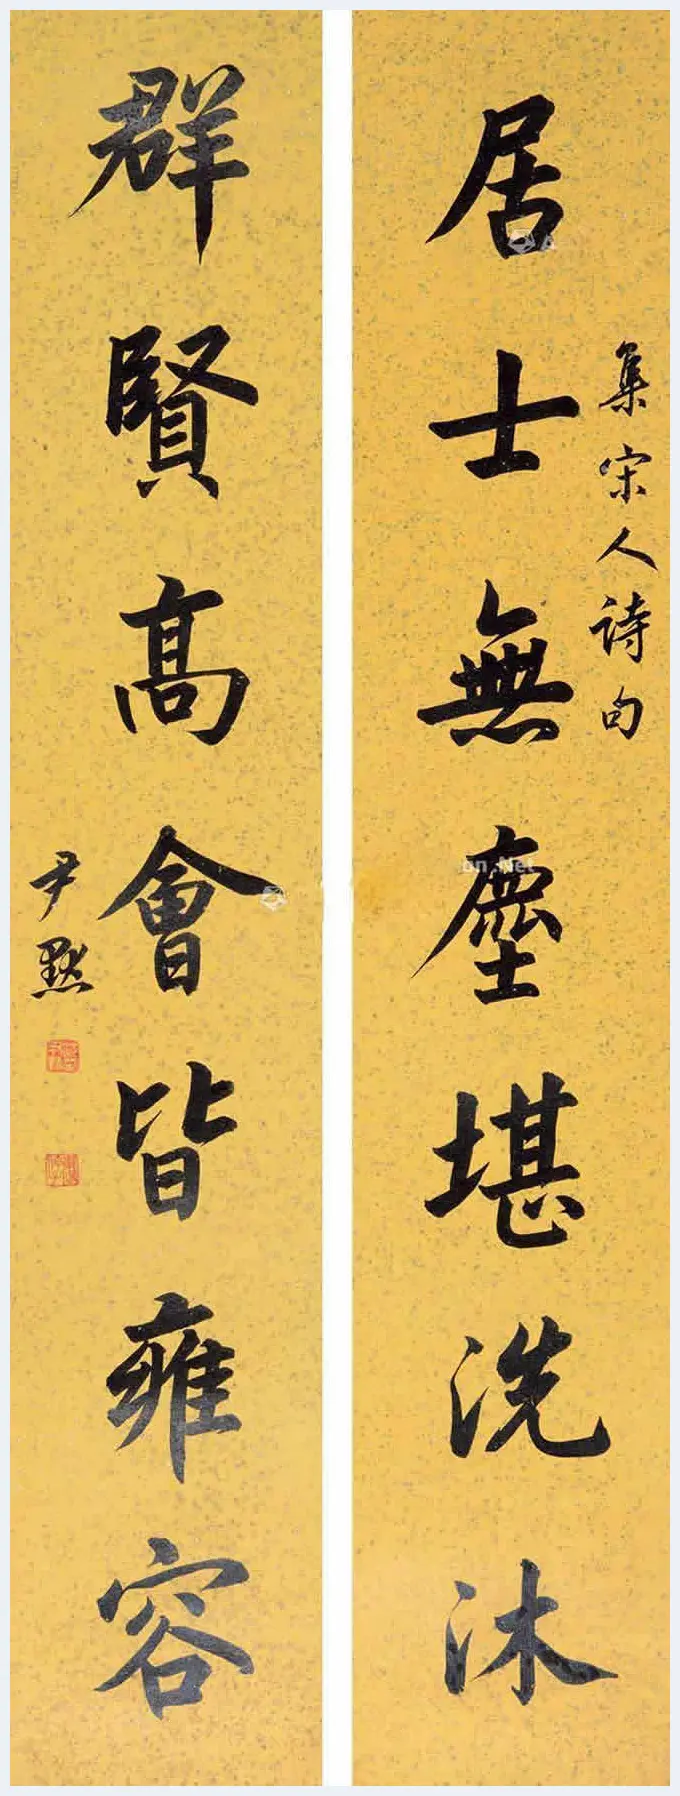 集宋人詩句
居士無塵堪洗沐
群賢高會皆雍容
尹默